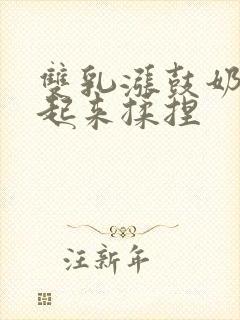 雙乳漲鼓奶
起来揉捏
汪新年